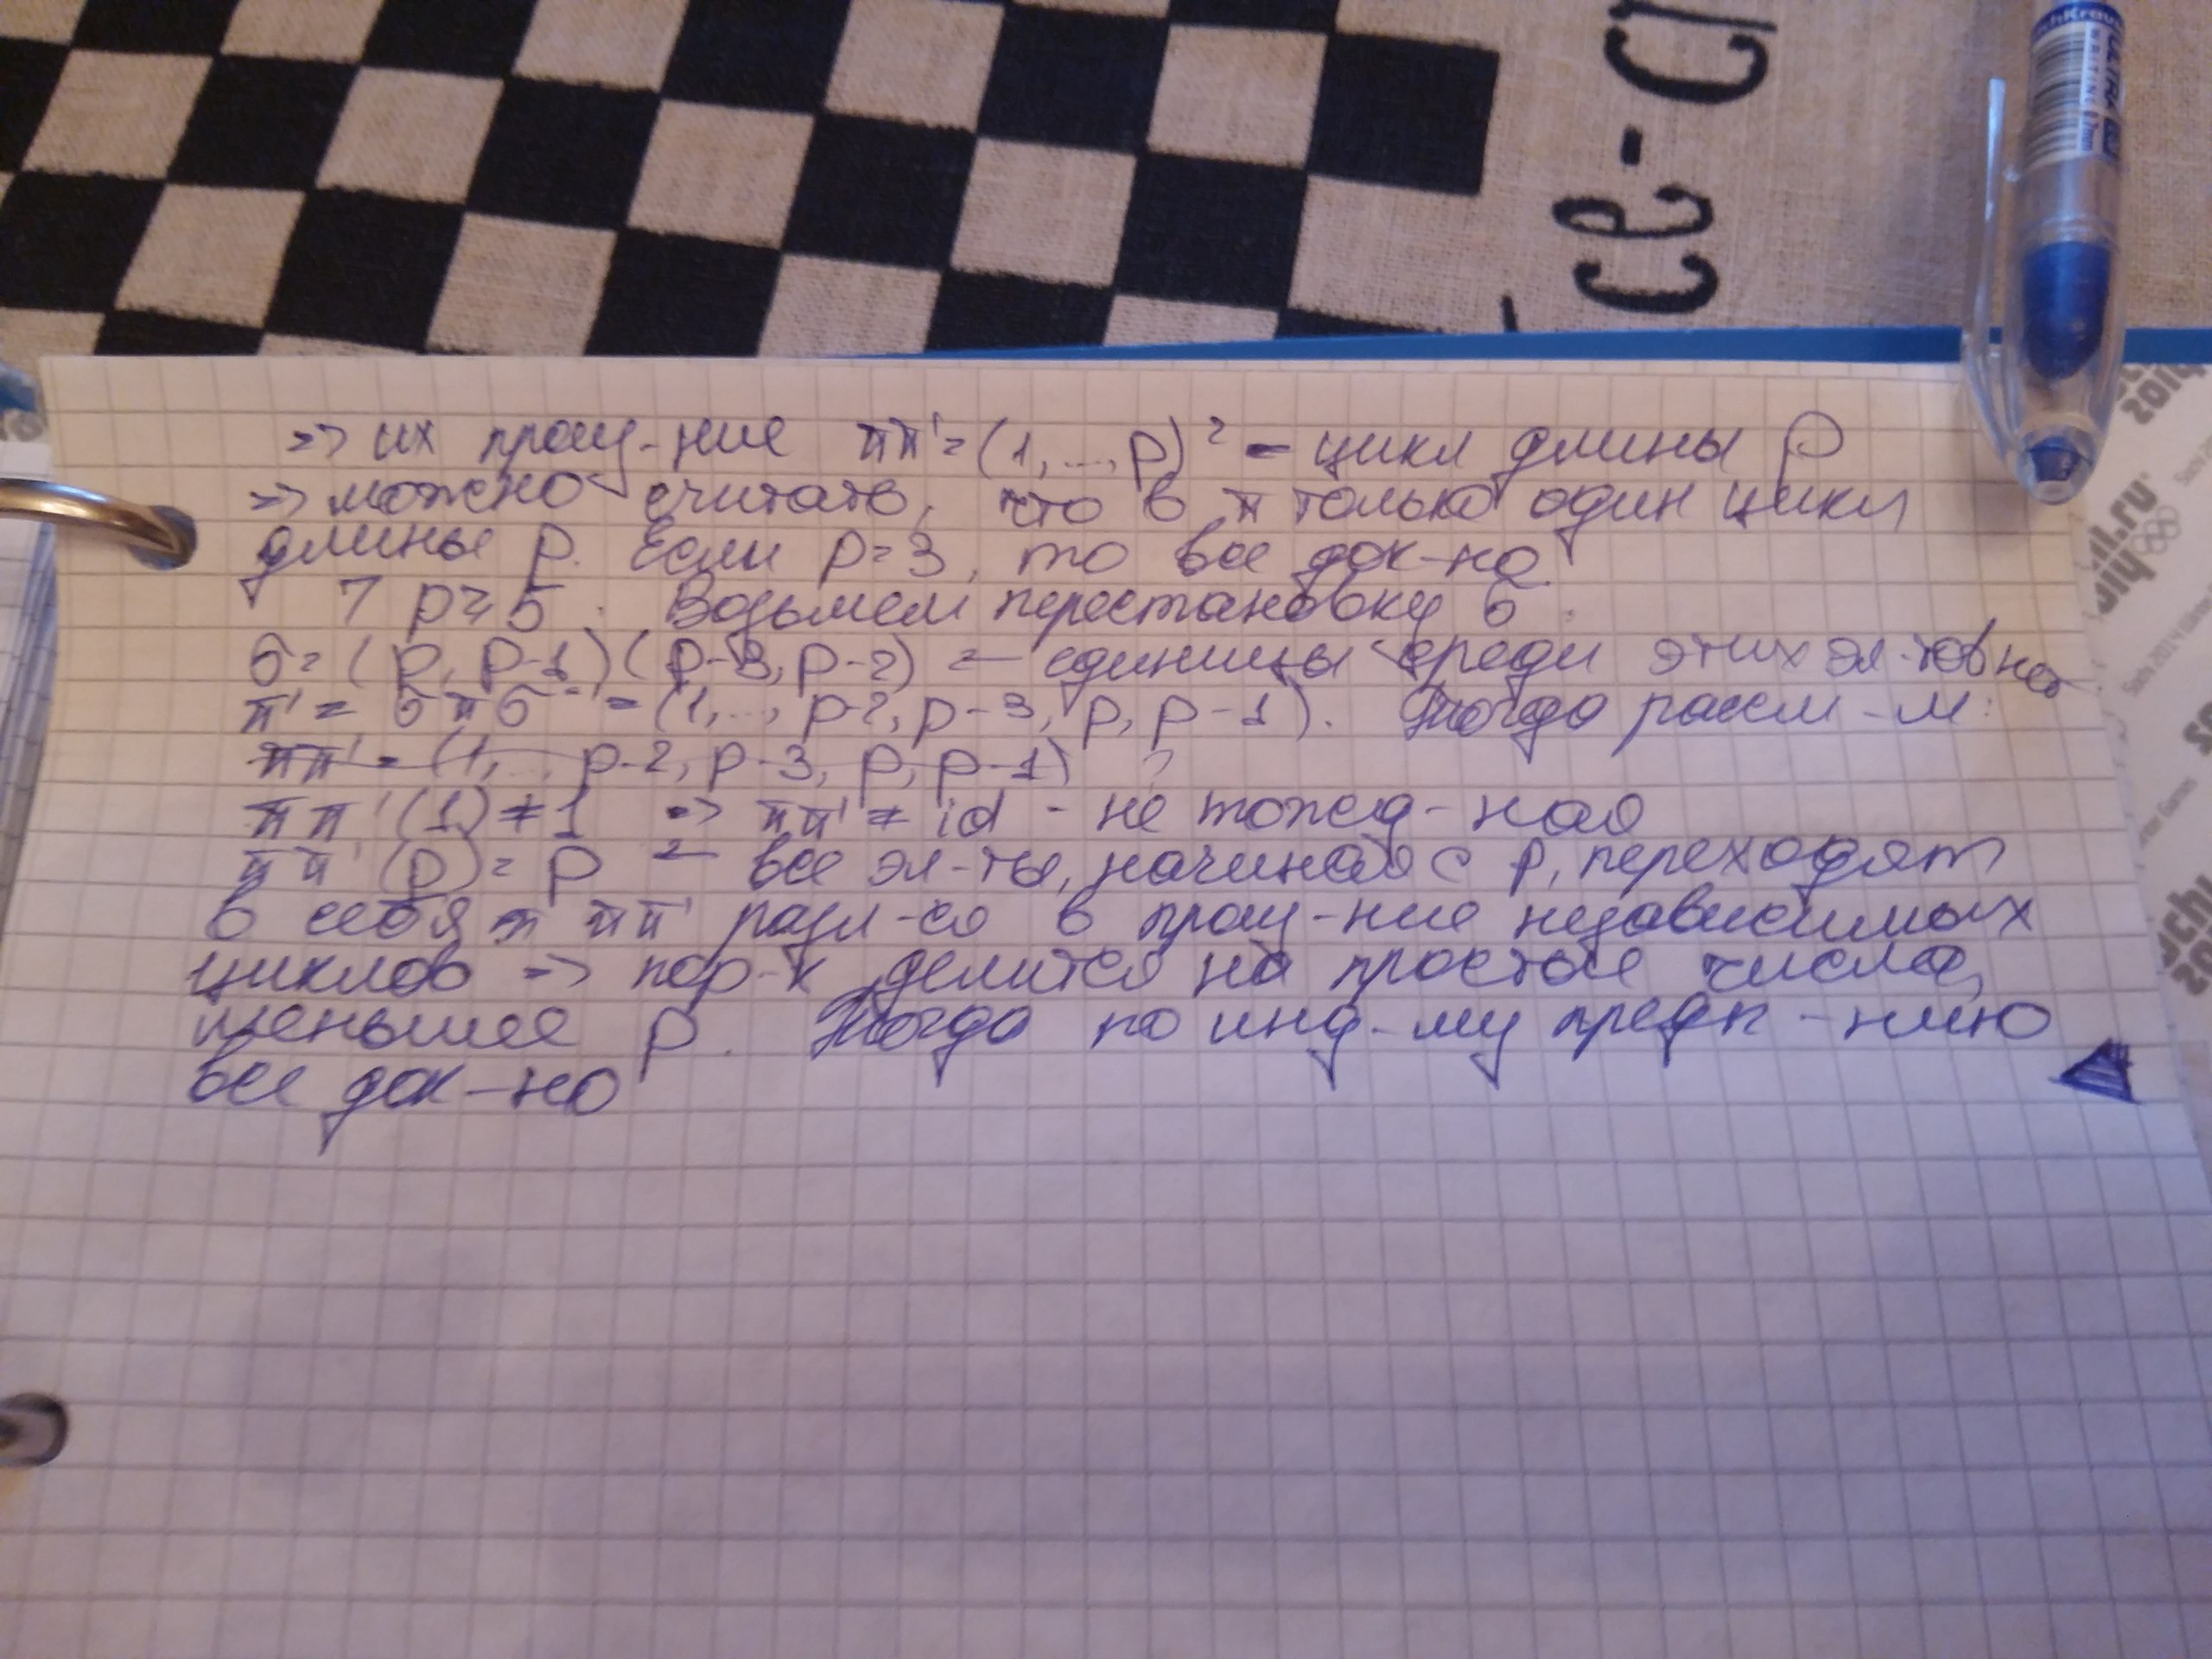 ce-ci
=> их произ-ние ππ' = (1, ..., p)² - цикл длины p
=> можно считать, что в π только один цикл
длины p. Если p = 3, то все док-но
7 p ≥ 5. Возьмем перестановку σ:
σ = (p, p-1)(p-3, p-2) - единицы среди этих эл-тов нет
π' = σπσ⁻¹ = (1, ..., p-2, p-3, p, p-1). Тогда рассм-м:
ππ' = (1, ... p-2, p-3, p, p-1)
ππ'(1) ≠ 1 => ππ' ≠ id - не тожд-ная
ππ'(p) = p - все эл-ты, начиная с p, переходят
в себя ππ' разл-ся в произ-ние независимых
циклов => пор-к делится на простые числа,
меньшее p. Тогда по инд-му предп-нию
все док-но